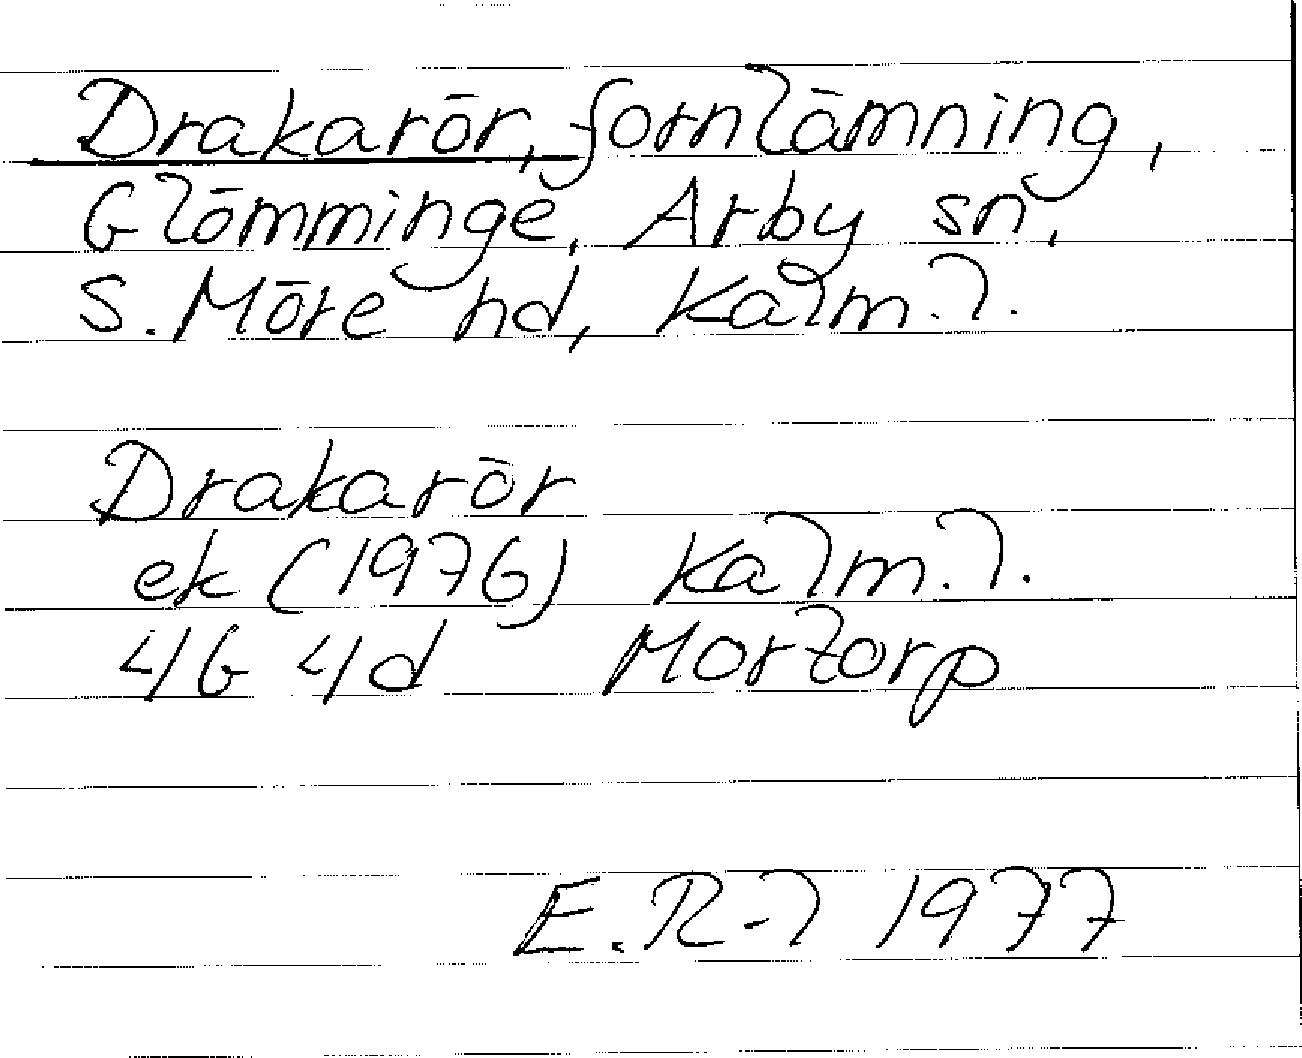 Drakarör, fornlämning,
Glömminge, Arby sn,
S. Möre hd, Kalm. l.
Drakarör
ek (1976) Kalm. l.
4G 4d Mortorp
E. R-l 1977